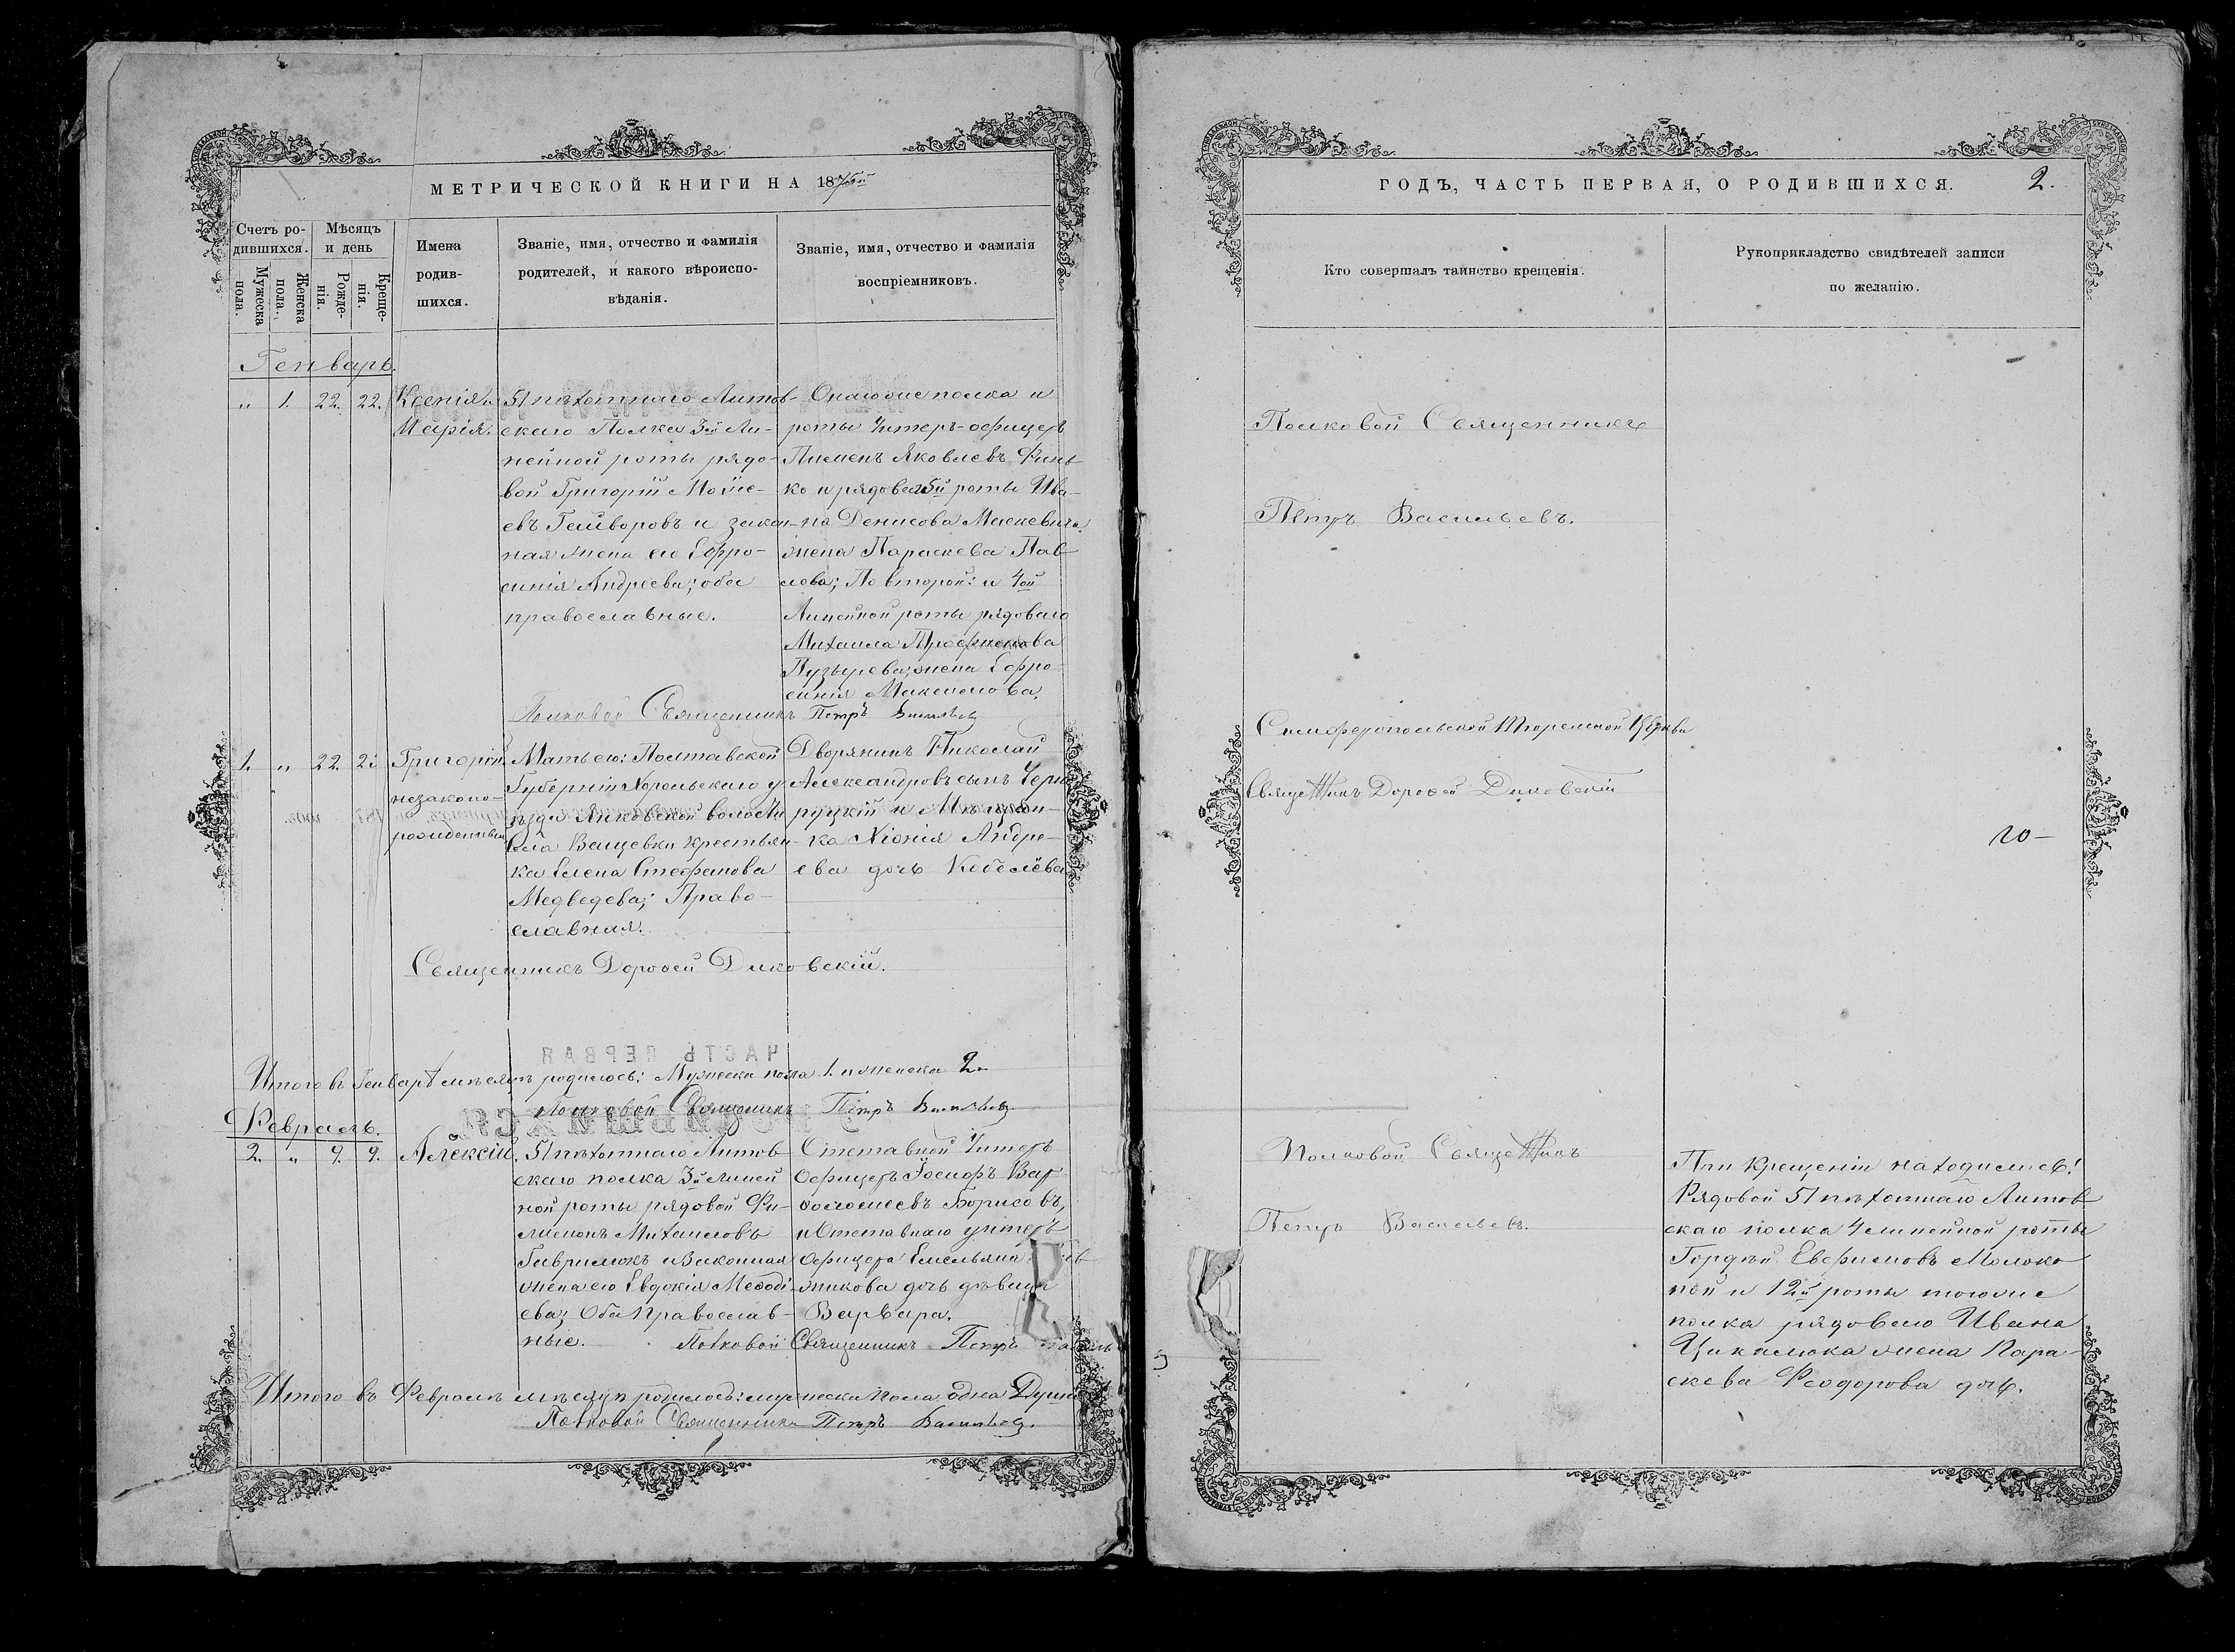 МЕТРИЧЕСКОЙ КНИГИ НА 1875й
Счетъ ро-
дившихся.
Мужеска
пола.
Женска
пола.
Мѣсяцъ
и день
Рожде-
нія.
Креще-
нія.
Имена
родив-
шихся.
Званіе, имя, отчество и фамилія
родителей, и какого вѣроиспо-
вѣданія.
Званіе, имя, отчество и фамилія
воспріемниковъ.
Генварь.
„ 1. 22. 22.
Ксенія и
Марія.
51 пѣхотнаго Литов-
скаго Полка 3й Ли-
нейной роты рядо-
вой Григорій Моѵсе-
евъ и закон-
ная жена его Ефро-
синія Андреева; оба
православные.
Онагоже полка и
роты Унтеръ-офицеръ
Пименъ Яковлевъ Финь-
ко и рядоваго 5й роты Ива-
на Денисова Маскевича
жена Параскева Пав-
лова; По второй: и 4ой
Линейной роты рядоваго
Михаила Трофимова
Пузырева жена Ефро-
синія Максимова.
Полковой Священникъ Петръ Васильевъ
1. „ 22. 25
Григорій
незаконо-
рожденный
Мать его: Полтавской
Губерніи Хорольскаго у
ѣзда Янковской волости
села Ващевки крестьян-
ка Елена Стефанова
Медведева; Право-
славная.
Дворянинъ Николай
Александровъ сынъ Черно
руцкій и Мѣщан-
ка Хіонія Андре-
ева дочь Кобелёва
Священникъ Дороѳей Диковскій.
ЧАСТЬ ПЕРВАЯ
Итого въ Генварѣ мѣсяцѣ родилось: Мужеска пола 1. и женска 2.
Полковой Священникъ Петръ Васильевъ
Февраль.
2. „ 9. 9.
Алексій.
51 пѣхотнаго Литов
скаго полка 3й линей
ной роты рядовой Фи-
лимонъ Михаиловъ
Гаврилюкъ и Законная
жена его Евдокія Меѳоді-
ева; Оба Православ-
ные.
Отставной Унтеръ
Офицеръ Іосифъ Вар
ѳоломеевъ Борисовъ,
и Отставнаго унтеръ
Офицера Емельяна
никова дочь дѣвица
Варвара.
Полковой Священникъ Петръ
Итого въ Февралѣ мѣсяцѣ родилось: мужеска пола одна Душа
Полковой Священникъ Петръ Васильевъ.
ГОДЪ, ЧАСТЬ ПЕРВАЯ, О РОДИВШИХСЯ. 2.
Кто совершалъ таинство крещенія.
Рукоприкладство свидѣтелей записи
по желанію.
Полковой Священникъ
Петръ Васильевъ.
Симферопольской Тюремной Церкви
Священникъ Дороѳей Диковскій
Полковой Священникъ
Петръ Васильевъ.
При Крещеніи находились:
Рядовой 51 пѣхотнаго Литов
скаго полка 4 линейной роты
Гордѣй Евфимовъ Молоко
пой и 12й роты тогоже
полка рядоваго Ивана
Цикалюка жена Пара-
скева Феодорова дочь.